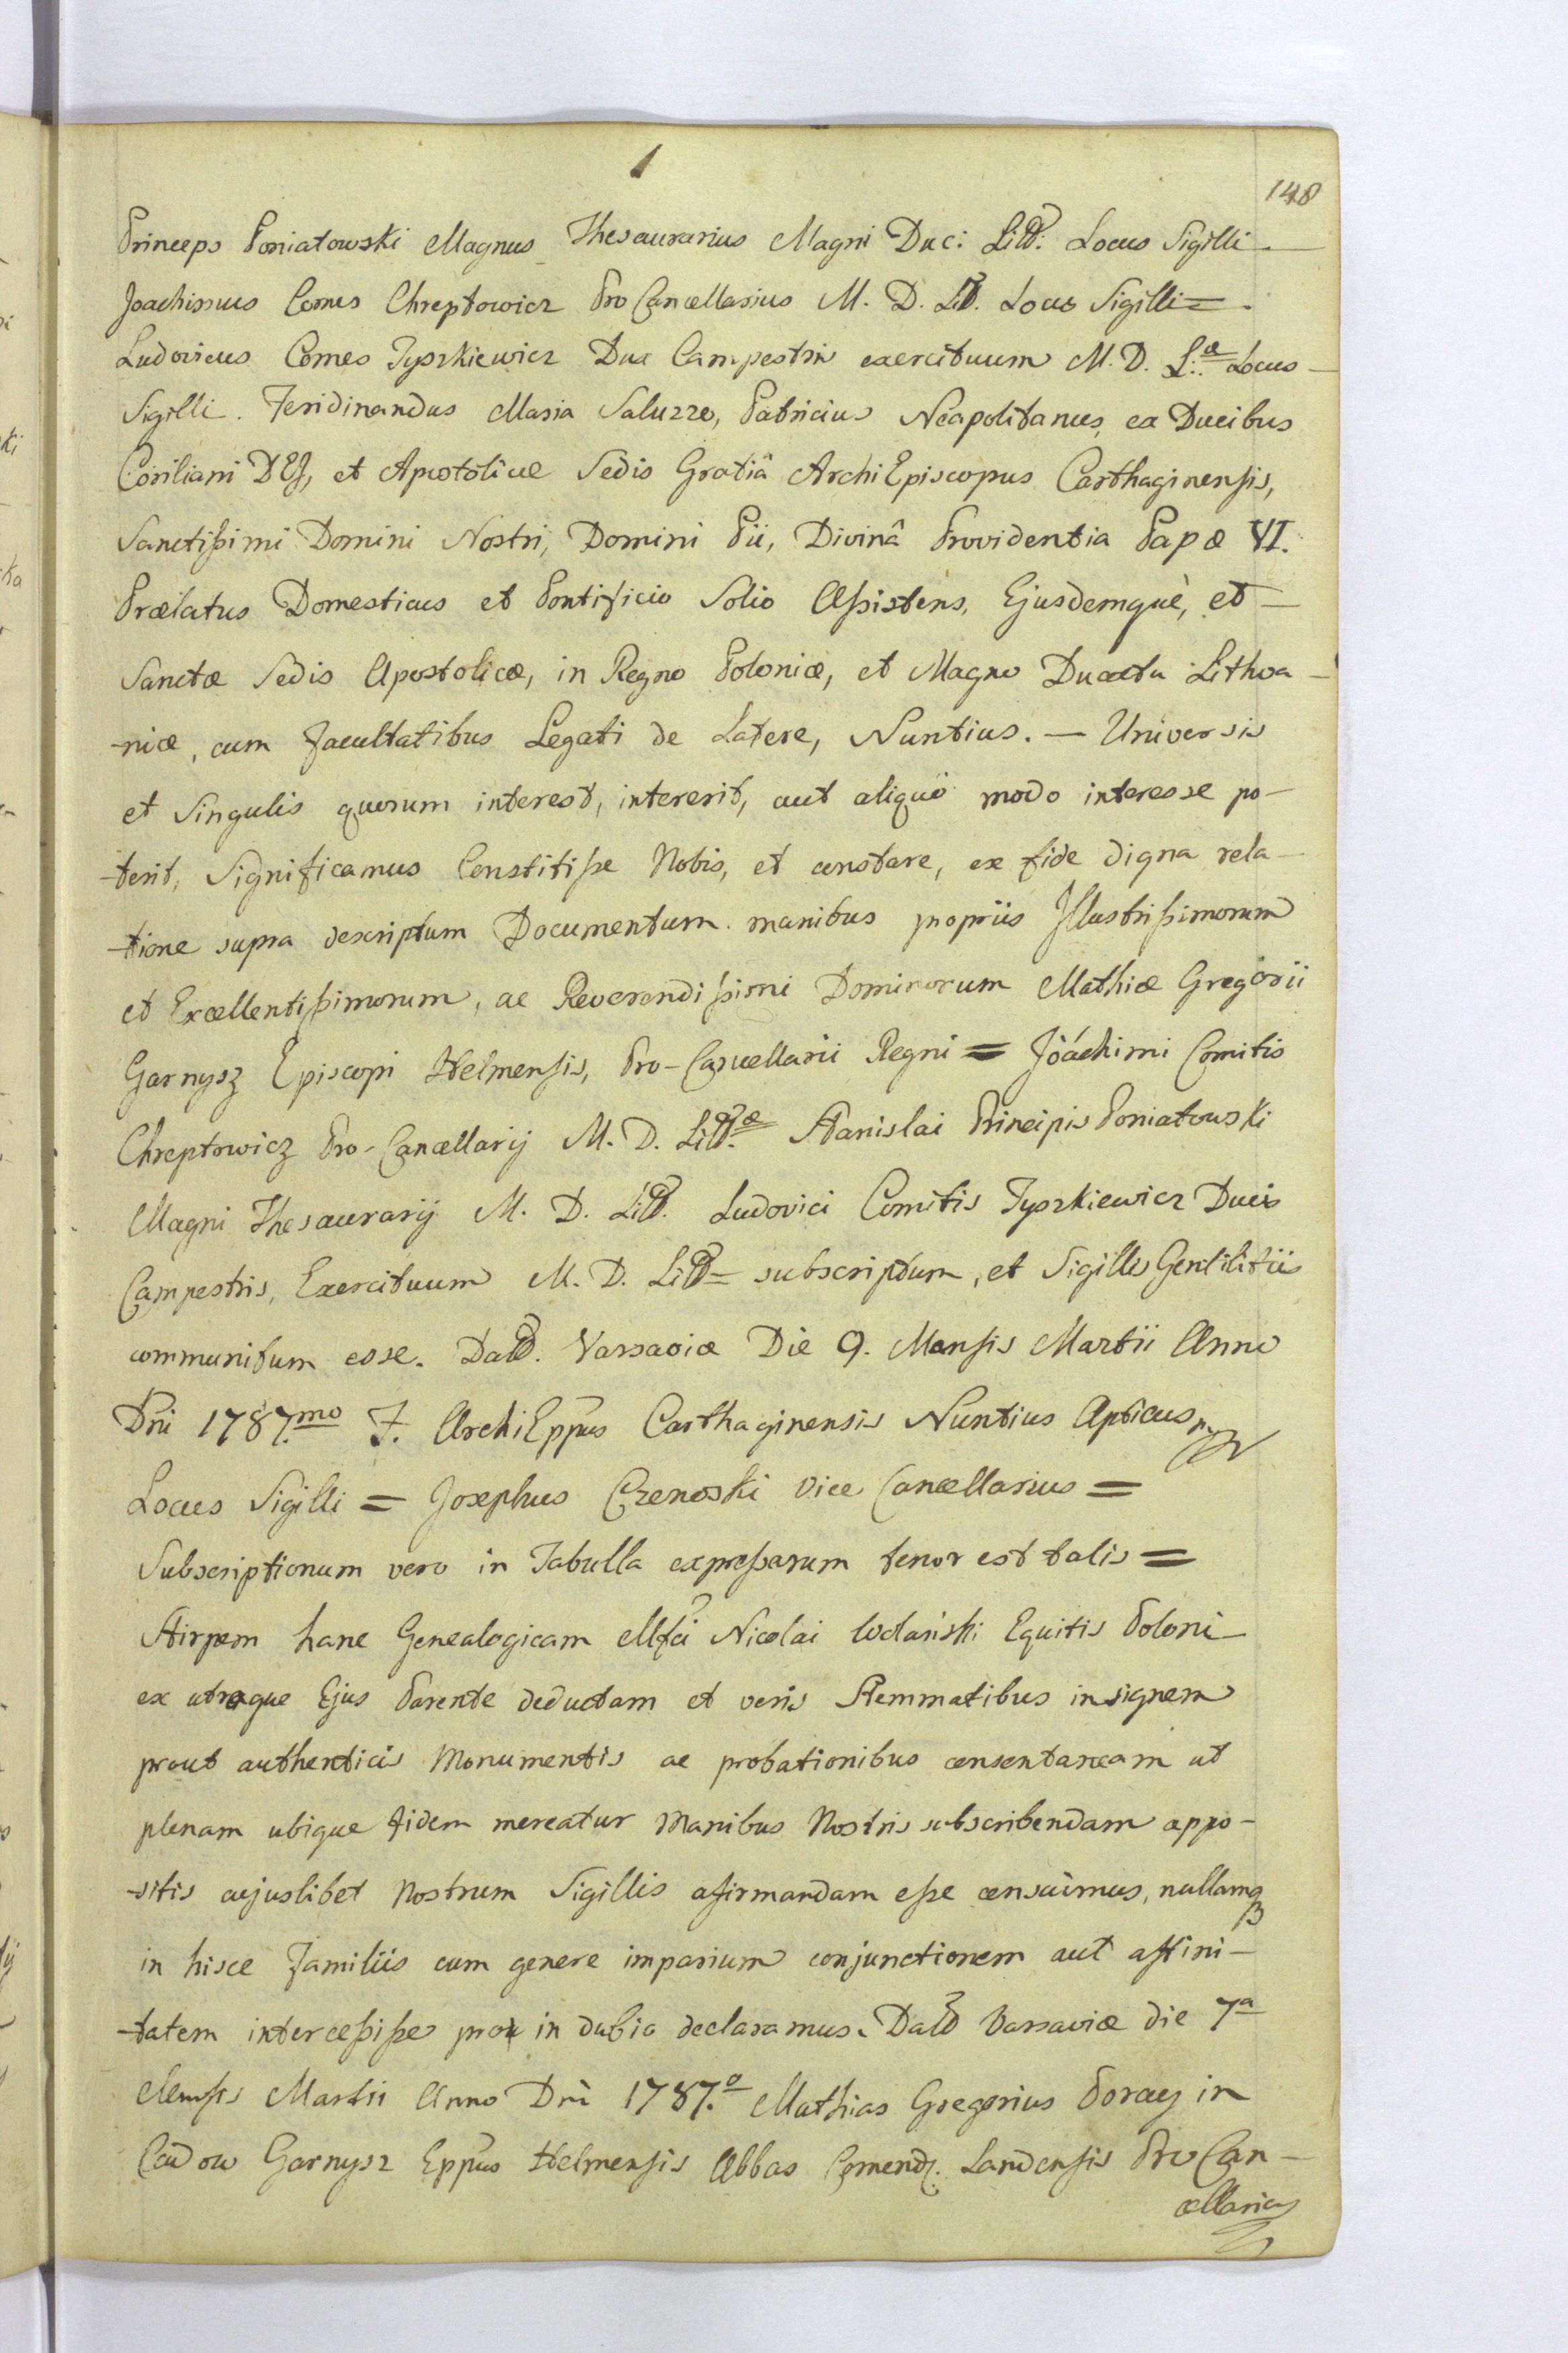 148
Princeps Poniatowski Magnus Thesaurarius Magni Duc: Litt: Locus Sigilli —
Joachimus Comes Chreptowicz Pro Cancellarius M. D. Litt. Locus Sigilli =
Ludovicus Comes Tyszkiewicz Dux Campestris exercituum M. D. L:æ Locus —
Sigilli. Feridinandus Maria Saluzzo, Patricius Neapolitanus, ex Ducibus
Coriliani DEJ, et Apostolicæ Sedis Gratiâ ArchiEpiscopus Carthaginensis,
Sanctißimi Domini Nostri, Domini Pii, Divinâ Providentia Papæ VI.
Prælatus Domesticus et Pontificio Solio Aßistens, Ejusdemquè, et —
Sanctæ Sedis Apostolicæ, in Regno Poloniæ, et Magno Ducatu Lithva –
-niæ, cum facultatibus Legati de Latere, Nuntius. — Universis
et Singulis quorum interest, intererit, aut aliquó modo interesse po –
-terit, Significamus Constitiße Nobis, et constare, ex fide digna rela –
-tione supra descriptum Documentum manibus propriis Jllustrißimorum
et Excellentißimorum, ac Reverendißimi Dominorum Mathiæ Gregorii
Garnysz Episcopi Helmensis, Pro-Cancellarii Regni = Joáchimi Comitis
Chreptowicz Pro-Cancellarij M. D. Litt.æ Stanislai Principis Poniatowski
Magni Thesaurarij M. D. Litt. Ludovici Comitis Tyszkiewicz Ducis
Campestris, Exercituum M. D. Litt= subscriptum, et Sigillis Gentilitiis
communitum esse. Datt. Varsaviæ Die 9. Mensis Martii Anno
Dni 1787.mo F. ArchiEppus Carthaginensis Nuntius Apticus
Locus Sigilli = Josephus Czenoski Vice Cancellarius =
Subscriptionum vero in Tabulla expreßarum tenor est talis =
Stirpem hanc Genealogicam Mfci Nicolai Wolański Equitis Poloni
ex utraque Ejus Parente deductam et veris Stemmatibus insignem
prout authenticis Monumentis ac probationibus consentaneam ut
plenam ubique fidem mereatur Manibus Nostris subscribendam appo –
-sitis cujuslibet Nostrum Sigillis afirmandam eße censuimus, nullamq
in hisce Familiis cum genere imparium conjunctionem aut affini –
-tatem interceßiße pro in dubio declaramus. Datt Varsaviæ die 7a
Mensis Martii Anno Dni 1787.o Mathias Gregorius Poray in
Garnysz Eppus Helmensis Abbas Comend. Landensis Pro Can –
cellarius